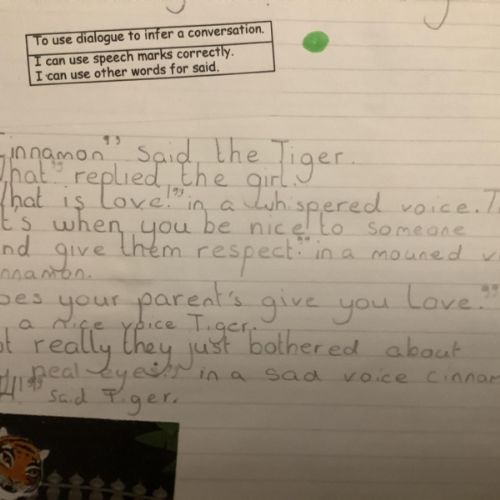 To use dialogue to infer a conversation.
I can use speech marks correctly.
I can use other words for said.
innamon" said the Tiger.
hat" replied the girl.
hat is love!" in a whispered voice. T
t's when you be nice to someone
nd give them respect." in a mouned v
nnamon.
oes your parent's give you love."
a nice voice Tiger.
t really they just bothered about
peal eyes" in a sad voice cinnam
" said Tiger.